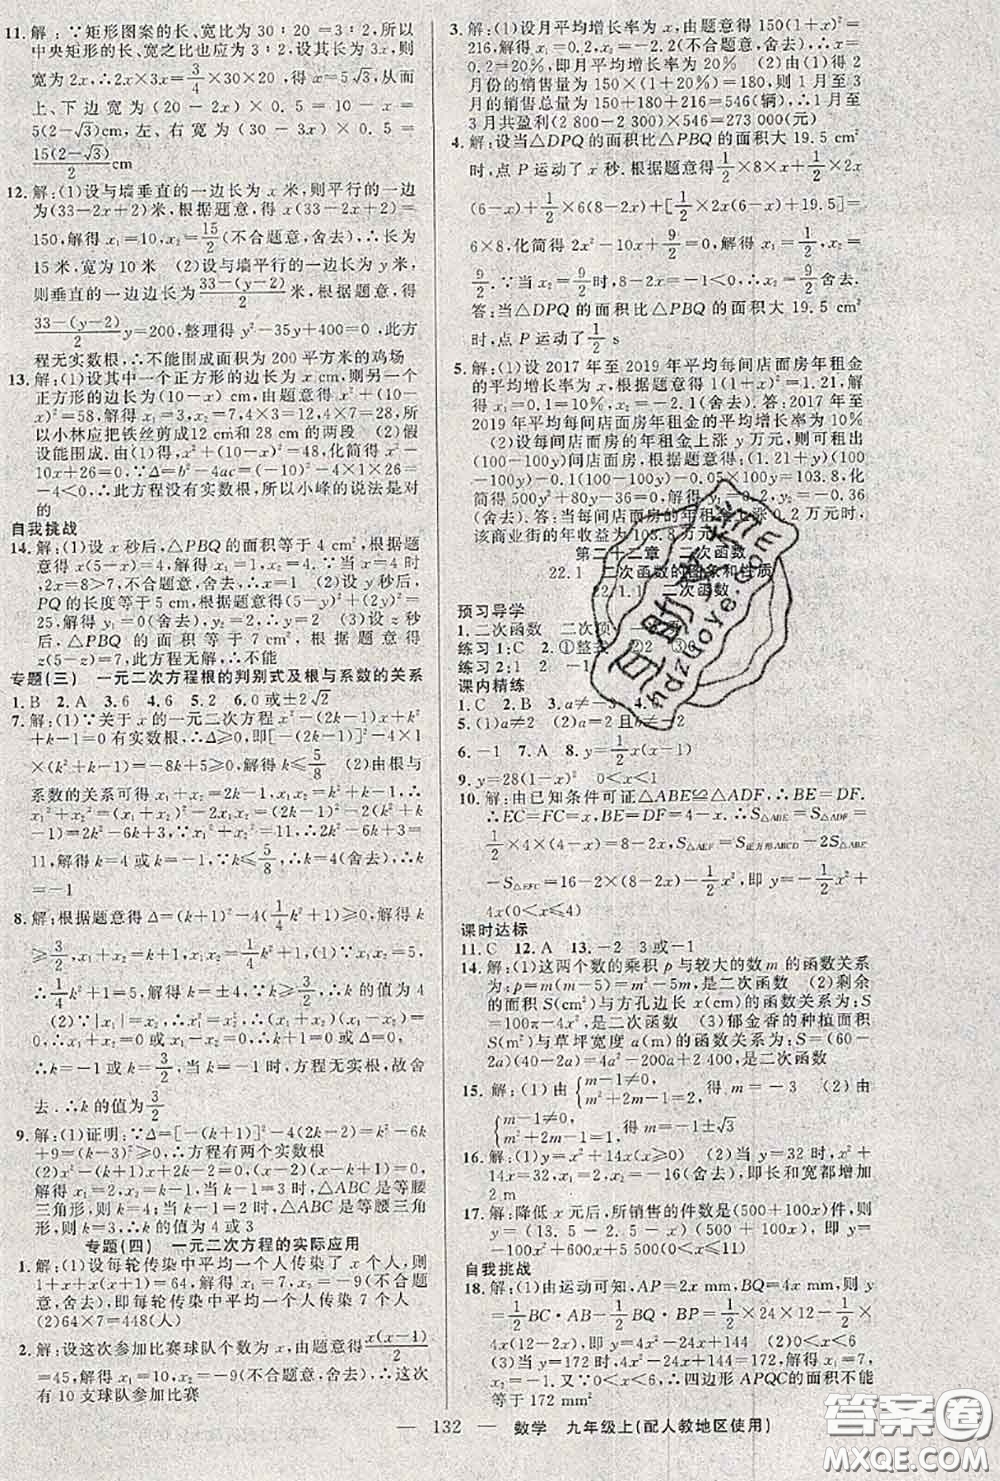 11.解:∵矩形图案的长、宽之比为30∶20=3∶2,所以
中央矩形的长、宽之比也应为3∶2,设其长为3x,则
宽为2x,∴2x·3x=3/4×30×20,∴x=5√3,从而
上、下边宽为(20-2x)×0.5=
5(2-√3)cm,左、右宽为(30-3x)×0.5=
15(2-√3)/2 cm
12.解:(1)设与墙垂直的一边长为x米,则平行的一边为
为(33-2x+2)米,根据题意,得x(33-2x+2)=
150,解得x₁=10,x₂=15/2(不合题意,舍去),∴长为
15米,宽为10米 (2)设与墙平行的一边长为y米,
则垂直的一边边长为33-(y-2)/2米,根据题意得
33-(y-2)/2 y=200,整理得y²-35y+400=0,此方
程无实数根,∴不能围成面积为200平方米的鸡场
13.解:(1)设其中一个正方形的边长为x cm,则另一个
正方形的边长为(10-x)cm,由题意得x²+(10-
x)²=58,解得x₁=3,x₂=7,4×3=12,4×7=28,所
以小林应把铁丝剪成12 cm和28 cm的两段 (2)假
设能围成.由(1)得x²+(10-x)²=48,化简得x²-
10x+26=0,∵Δ=b²-4ac=(-10)²-4×1×26=
-4<0,∴此方程没有实数根,所以小峰的说法是对
的
自我挑战
14.解:(1)设x秒后,△PBQ的面积等于4 cm²,根据
题意得x(5-x)=4,解得x₁=1,x₂=4.∵当x=4
时,2x=8>7,不合题意,舍去,∴x=1 (2)设y秒后,
PQ的长度等于5 cm,根据题意得(5-y)²+(2y)²=
25.解得y₁=0(舍去),y₂=2,∴y=2 (3)设z秒
后,△PBQ的面积等于7 cm²,根据题意得
z(5-z)=7,此方程无解,∴不能
专题(三) 一元二次方程根的判别式及根与系数的关系
1.B 2.A 3.6 4.6 5.2 6.0或±2√2
7.解:(1)∵关于x的一元二次方程x²-(2k-1)x+k²+
k-1=0有实数根,∴Δ≥0,即[-(2k-1)]²-4
×1×(k²+k-1)=-8k+5≥0,解得k≤5/8 (2)由根与
系数的关系可得x₁+x₂=2k-1,x₁x₂=k²+k-1,
∴x₁²+x₂²=(x₁+x₂)²-2x₁x₂=(2k-1)²-2(k²+
k-1)=2k²-6k+3,∵x₁²+x₂²=11,∴2k²-6k+3=
11,解得k=4或k=-1,∵k≤5/8,∴k=4(舍去),∴k
=-1
8.解:根据题意得Δ=(k+1)²-4(1/4k²+1)≥0,解得k
≥3/2,x₁+x₂=k+1,x₁x₂=1/4k²+1.(1)∵x₁x₂=5,
∴1/4k²+1=5,解得k₁=4,k₂=-4(舍去),∴k的值为4
(2)∵|x₁|=x₂,∴x₁²=x₂²,∴(x₁+x₂)(x₁-x₂)=
0,∵x₁+x₂=k+1>0,∴x₁-x₂=0,即Δ=0,
∴k=3/2,∴x₁+x₂=0或x₁-x₂=0,∴k=3/2,故舍
去.∴k的值为3/2
9.解:(1)证明:∵Δ=[-(k+1)]²-4(2k-2)=k²-
6k+9=(k-3)²≥0,∴方程有两个实数根
(2)x²-(k+1)x+2k-2=0,∴x₁=2,x₂=k-1,
解得x₁=k-1,x₂=2.当k-1=3时,△ABC是等腰
三角形,则k=4;当k-1=2时,△ABC是等腰三角
形,则k=3.∴k的值为4或3
专题(四) 一元二次方程的实际应用
1.解:(1)设每轮传染中平均一个人传染了x个人,则
1+x+x(x+1)=64,解得x₁=7,x₂=-9(不合题
意,舍去),即每轮传染中平均一个人传染7个人
(2)64×7=448(人)
2.解:设这次参加比赛球队个数为x,由题意得x(x-1)/2
=45,解得x₁=10,x₂=-9(不合题意,舍去),∴这次
有10支球队参加比赛
3.(1)设月平均增长率为x,由题意得150(1+x)²=
216,解得x₁=0.2,x₂=-2.2(不合题意,舍去),∴x=
0.2=20%,即月平均增长率为20% (2)由(1)得2
月份的销售量为150×(1+20%)=180(辆),1月至3
月的销售总量为150+180+216=546(辆),∴1月至
3月共盈利(2 800-2 300)×546=273 000(元)
4.解:设当△DPQ的面积比△PBQ的面积大19.5 cm²
时,点P运动了x秒.根据题意得1/2×8×x+1/2×2x
(6-x)+1/2×6(8-2x)+[1/2×2x(6-x)+19.5]=
6×8,化简得2x²-10x+9/2=0,解得x₁=1/2,x₂=
9/2.∵当x=9/2时,8-2x=-1<0,∴x=9/2舍去.
答:当△DPQ的面积比△PBQ的面积大19.5 cm²
时,点P运动了1/2 s
5.解:(1)设2017年至2019年平均每间店面房年租金
的平均增长率为x,根据题意得1(1+x)²=1.21,解得
x₁=0.1=10%,x₂=-2.1(舍去).答:2017年至
2019年平均每间店面房年租金的平均增长率为10%
(2)设每间店面房的年租金上涨y万元,则
(100-100y)间店面房.根据题意得(1.21+y)
(100-100y)-(100-100y)×0.1-100y×0.5=103.8,化
简得500y²+80y-36=0,解得y₁=0.2,y₂=-0.36
(舍去).答:当每间店面房的年租金上涨0.2万元时,
该商业街的年收益为103.8万元
第二十二章 二次函数
22.1 二次函数的图象和性质
22.1.1 二次函数
预习导学
1.二次函数 二次项
练习1:C 2.①整式 ②2 ③
练习2:1 2 -1
课内精练
1.C 2.B 3.a≠-3 4.
5.(1)a≠2 (2)a=2且b≠-2
6.-1 7.A 8.y=1/2x(x-1)
9.y=28(1-x)² 0<x<1
10.解:由已知条件可证△ABE≌△ADF,∴BE=DF.
∴EC=FC=x,BE=DF=4-x.∴S△ABE=S△ADF=1/2
×4×(4-x)=8-2x.∴S△AEF=S正方形ABCD-2S△ABE
-S△EFC=16-2×(8-2x)-1/2x²,即y=-1/2x²+
4x(0<x<4)
课时达标
11.C 12.A 13.-2 3或-1
14.解:(1)这两个数的乘积p与较大的数m的函数关系
为:p=m(m-5)=m²-5m,是二次函数 (2)剩余
的面积S(cm²)与方孔边长x(cm)的函数关系为:S=
100π-4x²,是二次函数 (3)郁金香的种植面积
S(m²)与草坪宽度a(m)的函数关系为:S=(60-
2a)(40-2a)=4a²-200a+2400,是二次函数
15.解:(1)由{m-1≠0, 得m=-3 (2)由
{m-1≠0, 得m≠1且m≠±√3
16.解:(1)y=x²+14x(x≥0) (2)当y=32时,x²+
14x=32,∴x₁=2,x₂=-16(舍去),即长和宽都增加
2 m
17.解:降低x元后,所销售的件数是(500+100x)件,则
y=(13.5-2.5-x)(500+100x),即y=
-100x²+600x+5500(0≤x≤11)
自我挑战
18.解:(1)由运动可知,AP=2x mm,BQ=4x mm,则y=
1/2BC·AB-1/2BQ·BP=1/2×24×12-1/2×
4x(12-2x),即y=4x²-24x+144 (2)0<x<6
(3)当y=172时,4x²-24x+144=172,解得x₁=7,
x₂=-1.又∵0<x<6,∴四边形APQC的面积不能
等于172 mm²
— 132 — 数学 九年级上(配人教地区使用)
答案圈
MXQE.COM